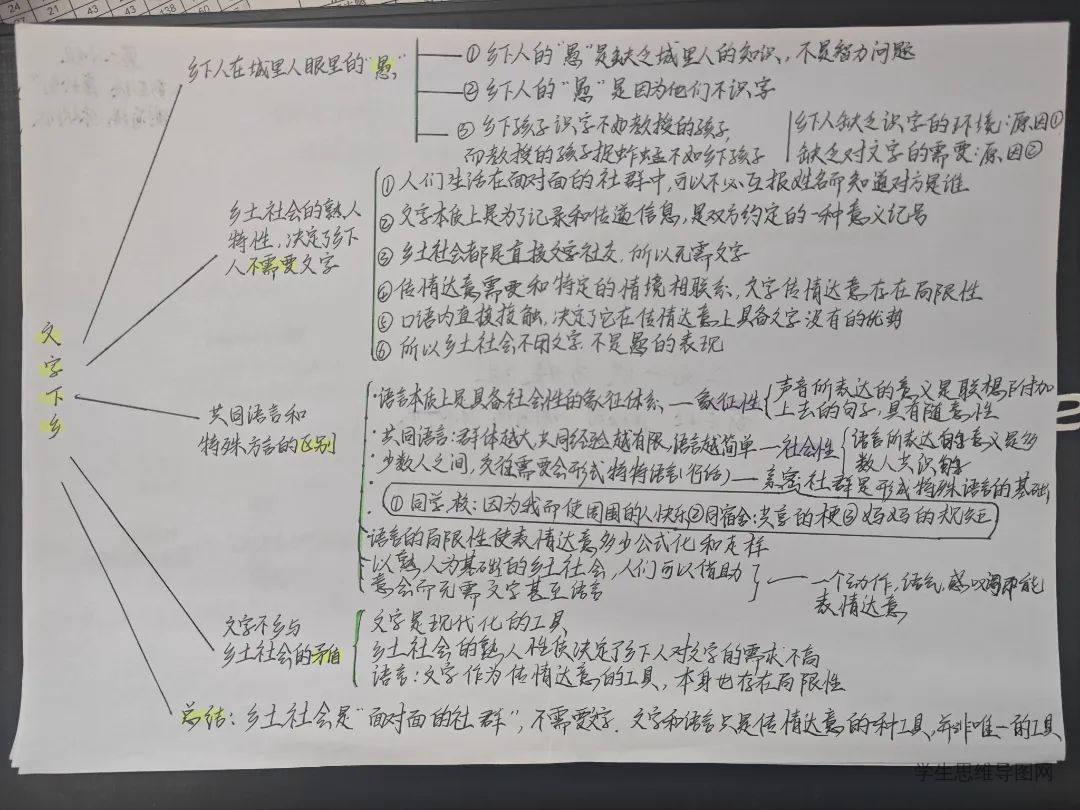 乡下人在城里人眼里的"愚"
① 乡下人的"愚"是缺乏城里人的知识，不是智力问题
② 乡下人的"愚"是因为他们不识字
③ 乡下孩子识字不如教授的孩子，
而教授的孩子捉蚱蜢不如乡下孩子
乡下人缺乏识字的环境：原因①
缺乏对文字的需要：原因②
乡土社会的熟人
特性，决定了乡下
人不需要文字
① 人们生活在面对面的社群中，可以不必互报姓名而知道对方是谁
② 文字本质上是为了记录和传递信息，是双方约定的一种意义记号
③ 乡土社会都是直接文字社交，所以无需文字
④ 传情达意需要和特定的情境相联系，文字传情达意存在局限性
⑤ 口语内直接接触，决定了它在传情达意上具备文字没有的优势
⑥ 所以乡土社会不用文字 不是愚的表现
文字下乡
共同语言和
特殊方言的区别
·语言本质上是具备社会性的象征体系 — 象征性
声音所表达的意义是联想附加
上去的句子，具有随意性
·共同语言：群体越大，共同经验越有限，语言越简单 — 社会性
语言所表达的意义是多
数人共识
·少数人之间，交往需要会形式特特语言(行话) — 亲密社群是形成特殊语言的基础
·① 同学，梭：因为我而使周围的人快乐 ② 同宿舍：共享的梗 ③ 妈妈的
语言的局限性使表情达意多少公式化和走样
以熟人为基础的乡土社会，人们可以借助
意会而无需文字甚至语言
一个动作，语气，感叹词即能
表情达意
文字下乡与
乡土社会的矛盾
文字是现代化的工具
乡土社会的熟人性质决定了乡下人对文字的需求不高
语言：文字作为传情达意的工具，本身也存在局限性
总结：乡土社会是"面对面的社群"，不需要文字．文字和语言只是传情达意的一种工具，并非唯一的工具
学生思维导图网